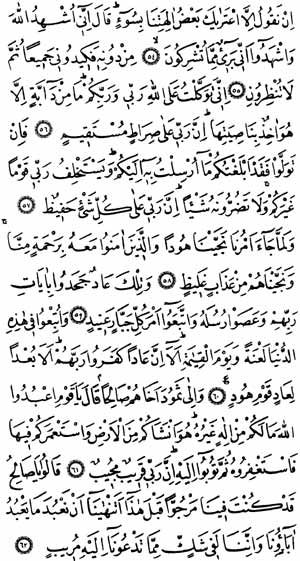 اِنْ نَقُولُ اِلَّا اعْتَرٰيكَ بَعْضُ اٰلِهَتِنَا بِسُٓوءٍۜ قَالَ اِنّ۪ٓي اُشْهِدُ اللّٰهَ
وَاشْهَدُٓوا اَنّ۪ي بَر۪ٓيءٌ مِمَّا تُشْرِكُونَۙ ﴿٥٤﴾ مِنْ دُونِه۪ فَك۪يدُون۪ي جَم۪يعًا ثُمَّ
لَا تُنْظِرُونِ ﴿٥٥﴾ اِنّ۪ي تَوَكَّلْتُ عَلَى اللّٰهِ رَبّ۪ي وَرَبِّكُمْۜ مَا مِنْ دَٓابَّةٍ اِلَّا
هُوَ اٰخِذٌ بِنَاصِيَتِهَاۜ اِنَّ رَبّ۪ي عَلٰى صِرَاطٍ مُسْتَق۪يمٍ ﴿٥٦﴾ فَاِنْ
تَوَلَّوْا فَقَدْ اَبْلَغْتُكُمْ مَٓا اُرْسِلْتُ بِه۪ٓ اِلَيْكُمْۜ وَيَسْتَخْلِفُ رَبّ۪ي قَوْمًا
غَيْرَكُمْۚ وَلَا تَضُرُّونَهُ شَيْـًٔاۜ اِنَّ رَبّ۪ي عَلٰى كُلِّ شَيْءٍ حَف۪يظٌ ﴿٥٧﴾
وَلَمَّا جَٓاءَ اَمْرُنَا نَجَّيْنَا هُودًا وَالَّذ۪ينَ اٰمَنُوا مَعَهُ بِرَحْمَةٍ مِنَّاۚ
وَنَجَّيْنَاهُمْ مِنْ عَذَابٍ غَل۪يظٍ ﴿٥٨﴾ وَتِلْكَ عَادٌ جَحَدُوا بِاٰيَاتِ
رَبِّهِمْ وَعَصَوْا رُسُلَهُ وَاتَّبَعُٓوا اَمْرَ كُلِّ جَبَّارٍ عَن۪يدٍ ﴿٥٩﴾ وَاُتْبِعُوا ف۪ي هٰذِهِ
الدُّنْيَا لَعْنَةً وَيَوْمَ الْقِيٰمَةِۜ اَلَٓا اِنَّ عَادًا كَفَرُوا رَبَّهُمْۜ اَلَا بُعْدًا
لِعَادٍ قَوْمِ هُودٍ۟ ﴿٦٠﴾ وَاِلٰى ثَمُودَ اَخَاهُمْ صَالِحًاۢ قَالَ يَا قَوْمِ اعْبُدُوا
اللّٰهَ مَا لَكُمْ مِنْ اِلٰهٍ غَيْرُهُۜ هُوَ اَنْشَاَكُمْ مِنَ الْاَرْضِ وَاسْتَعْمَرَكُمْ ف۪يهَا
فَاسْتَغْفِرُوهُ ثُمَّ تُوبُٓوا اِلَيْهِۜ اِنَّ رَبّ۪ي قَر۪يبٌ مُج۪يبٌ ﴿٦١﴾ قَالُوا يَا صَالِحُ
قَدْ كُنْتَ ف۪ينَا مَرْجُوًّا قَبْلَ هٰذَٓا اَتَنْهٰينَٓا اَنْ نَعْبُدَ مَا يَعْبُدُ
اٰبَٓاؤُ۬نَا وَاِنَّنَا لَف۪ي شَكٍّ مِمَّا تَدْعُونَٓا اِلَيْهِ مُر۪يبٍ ﴿٦٢﴾